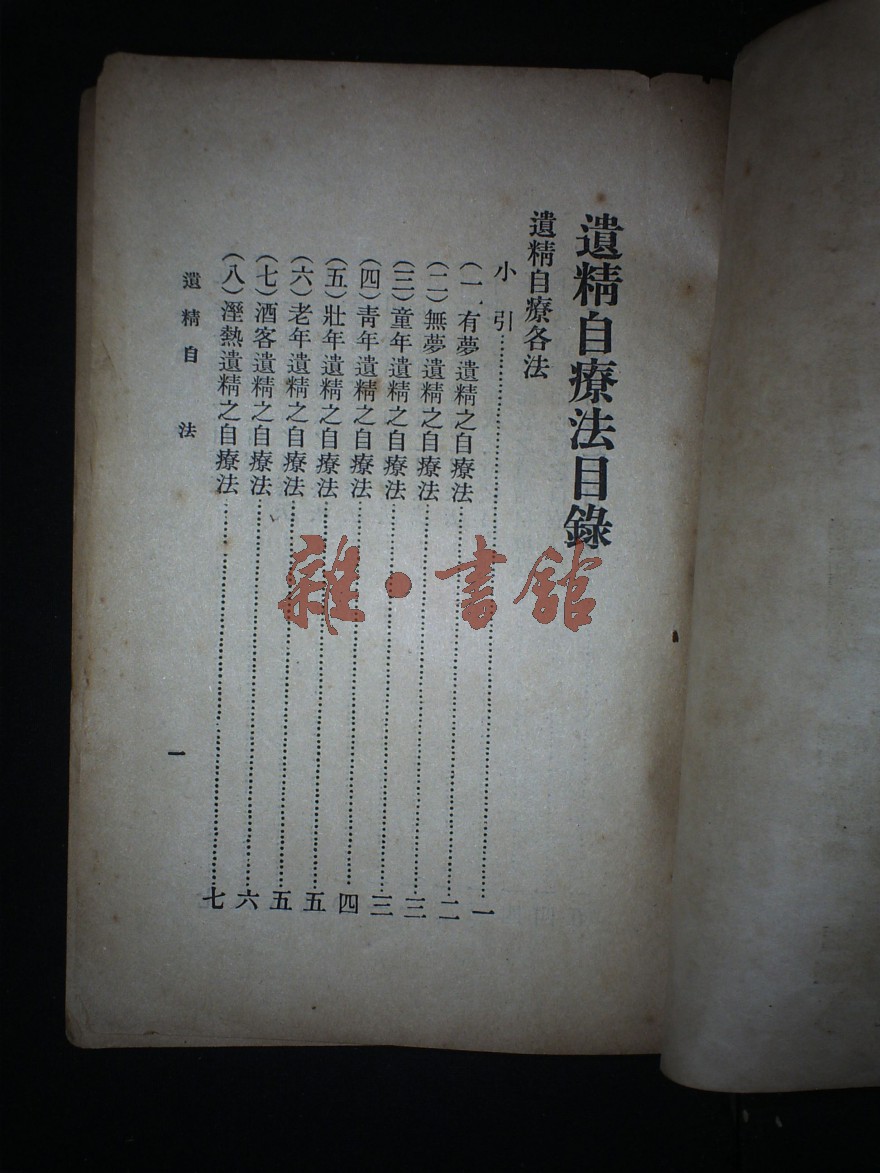 遺精自療法目錄
遺精自療各法
小引…………一
(一)有夢遺精之自療法…………二
(二)無夢遺精之自療法…………三
(三)童年遺精之自療法…………三
(四)青年遺精之自療法…………四
(五)壯年遺精之自療法…………五
(六)老年遺精之自療法…………五
(七)酒客遺精之自療法…………六
(八)溼熱遺精之自療法…………七
遺精自 法
一
雜·書館